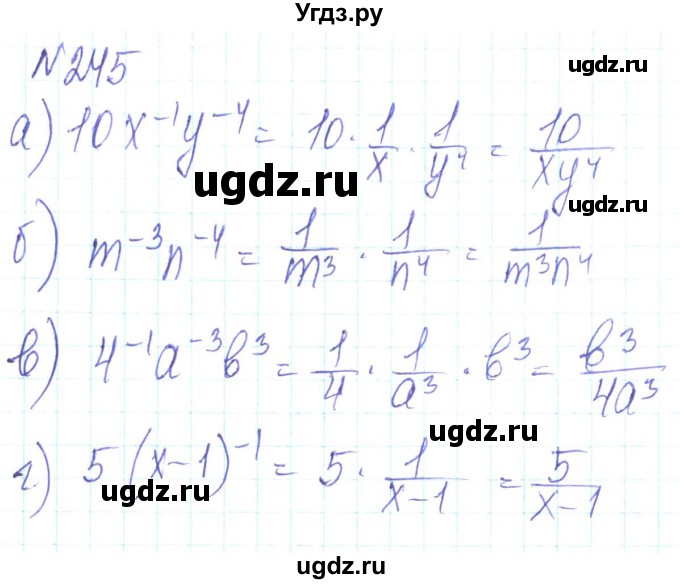 Угдз.ру
ugdz.ru
№245
а) 10x⁻¹y⁻⁴ = 10 · 1/x · 1/y⁴ = 10/xy⁴
ugdz.ru
ugdz.ru
б) m⁻³n⁻⁴ = 1/m³ · 1/n⁴ = 1/m³n⁴
ugdz.ru
в) 4⁻¹a⁻³b³ = 1/4 · 1/a³ · b³ = b³/4a³
ugdz.ru
г) 5(x-1)⁻¹ = 5 · 1/x-1 = 5/x-1
ugdz.ru
ugdz.ru
ugdz.ru